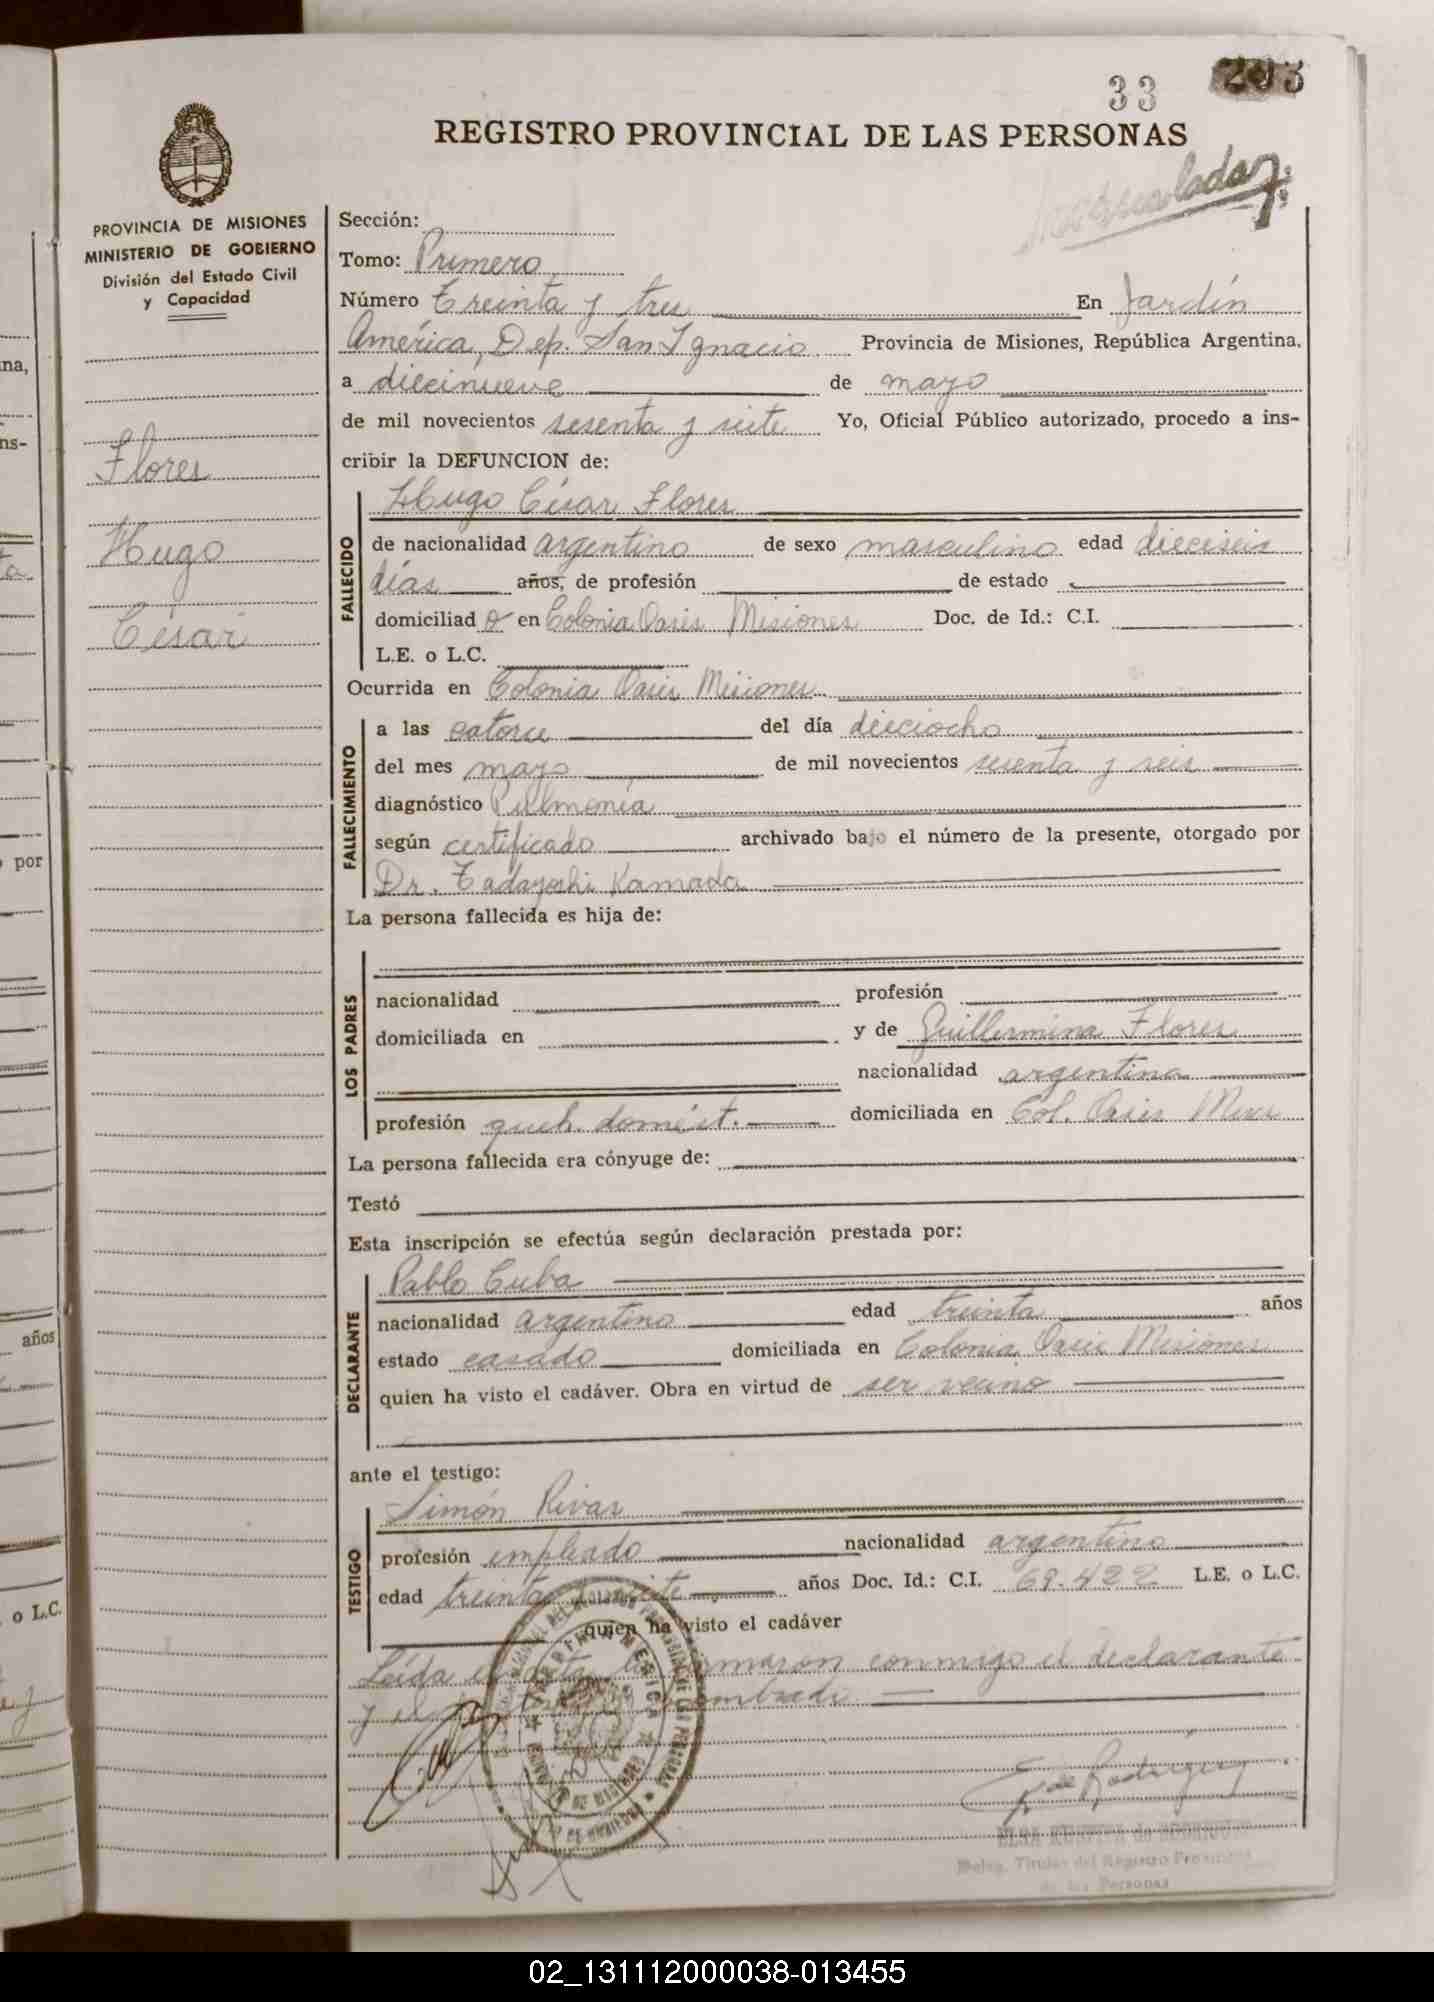 33 203
REGISTRO PROVINCIAL DE LAS PERSONAS
PROVINCIA DE MISIONES
MINISTERIO DE GOBIERNO
División del Estado Civil
y Capacidad
Flores
Hugo
César
Sección:
Tomo: Primero
Número Treinta y tres En Jardín
América, Dep. San Ignacio Provincia de Misiones, República Argentina,
a diecinueve de mayo
de mil novecientos sesenta y siete Yo, Oficial Público autorizado, procedo a ins-
cribir la DEFUNCION de:
Hugo César Flores
FALLECIDO
de nacionalidad argentino de sexo masculino edad dieciseis
días años, de profesión de estado
domiciliad o en Colonia Oasis Misiones Doc. de Id.: C.I.
L.E. o L.C.
Ocurrida en Colonia Oasis Misiones
FALLECIMIENTO
a las catorce del día dieciocho
del mes mayo de mil novecientos sesenta y seis
diagnóstico Pulmonía
según certificado archivado bajo el número de la presente, otorgado por
Dr. Tadayoshi Kamada
La persona fallecida es hija de:
LOS PADRES
nacionalidad profesión
domiciliada en y de Guillermina Flores
nacionalidad argentina
profesión queh. domést. domiciliada en Col. Oasis Mnes
La persona fallecida era cónyuge de:
Testó
Esta inscripción se efectúa según declaración prestada por:
DECLARANTE
Pablo Cuba
nacionalidad argentino edad treinta años
estado casado domiciliada en Colonia Oasis Misiones
quien ha visto el cadáver. Obra en virtud de ser vecino
ante el testigo:
TESTIGO
Simón Rivas
profesión empleado nacionalidad argentino
edad treinta y siete años Doc. Id.: C.I. 69.422 L.E. o L.C.
quien ha visto el cadáver
Leída el acta la firmaron conmigo el declarante
y el nombrado
E. de Rodriguez
de RODRIGUEZ
Deleg. Titular del Registro Provincial
de las Personas
02_131112000038-013455